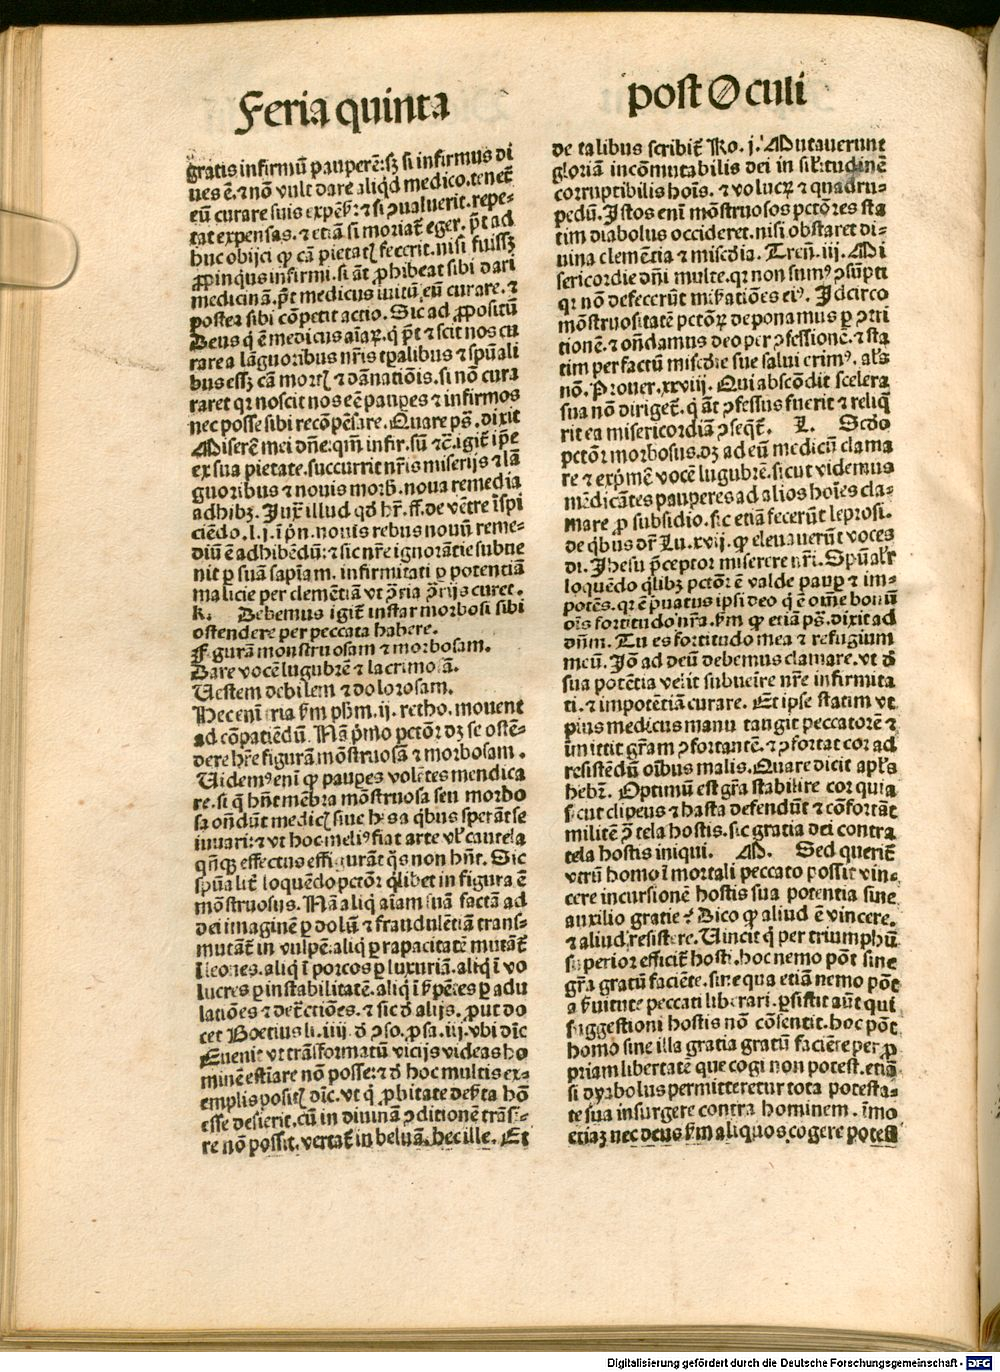 Feria quinta
post Oculi
gratis infirmū pauperē: sꝫ si infirmus di
ues ē. ⁊ nō vult dare aliqd medico. tenet̄
eū curare suis expēs̄: ⁊ si ꝯualuerit. repe-
tat expensas. ⁊ etiā si moriat̄ eger. p̄t ad
huc obijci ꝙ cā pietatꝭ fecerit. nisi fuissꝫ
ꝓpinqus infirmi. si āt ꝓhibeat sibi dari
medicinā. p̄t medicus iuitū eū curare. ⁊
postea sibi cōpetit actio. Sic ad ꝓpositū
Deus q̇ ē medicus aīaꝝ. q̇ p̄t ⁊ scit nos cu
rare a lāguoribus nr̄is tp̄alibus ⁊ spūali
bus essꝫ cā mortꝭ ⁊ dānatiōis. si nō cura
raret qr noscit nos eē paupes ⁊ infirmos
nec posse sibi recōpēsare. Quare ps̄. dixit
Miserē mei dn̄e. qm̄ infir. sū ⁊c̄. igit̄ ip̄e
ex sua pietate. succurrit nr̄is miserijs ⁊ lā
guoribus ⁊ nouis morb̄. noua remedia
adhibꝫ. Jux̄ illud qd̄ hr̄. ff. de vētre īspi
ciēdo. l. j. ī p̄n. nouis rebus nouū reme-
diū ē adhibēdū: ⁊ sic nr̄e ignorātie subue
nit ꝑ suā sap̄iam. infirmitati ꝑ potentiā
malicie per clementiā vt ꝯ̄ria ꝯ̄rijs curet.
k. Debemus igit̄ instar morbosi sibi
ostendere per peccata habere.
Figurā monstruosam ⁊ morbosam.
Dare vocē lugubrē ⁊ lacrimosā.
Uestem debilem ⁊ dolorosam.
Hec enī tria s̄m ph̄m. ij. retho. mouent
ad cōpatiēdū. Nā p̄mo pctōr dꝫ se ostē-
dere hr̄e figurā mōstruosā ⁊ morbosam.
Uidemꝰ enī ꝙ paupes volētes mendica
re. si q̄ hn̄t mēbra mōstruosa seu morbo
sa ondūt medicꝭ siue hesa qbus sperāt se
iuuari: ⁊ vt hoc meliꝰ fiat arte vl̄ cautela
qn̄qꝫ effectus effigurāt qs non hn̄t. Sic
spūalit̄ loquēdo pctōr qlibet in figura ē
mōstruosus. Nā aliq aīam suā factā ad
dei imaginē ꝑ dolū ⁊ fraudulētiā trans-
mutāt̄ in vulpē. aliq ꝑ rapacitatē mutāt̄
ī leones. aliq ī porcos ꝑ luxuriā. aliq ī vo
lucres ꝑ instabilitatē. aliq ī s̄pētes ꝑ adu
latiōes ⁊ det̄ctiōes. ⁊ sic d̄ alijs. ꝓut do
cet Boetius li. iiij. d̄ ꝯso. ꝓsa. iij. vbi dīc
Euenit vt trāsformatū vicijs videas ho
minē estīare nō posse: ⁊ d̄ hoc multis ex-
emplis positꝭ dīc. vt q̇ ꝓbitate des̄ta hō
esse desierit. cū in diuinā ꝯditionē trāsi-
re nō possit. vertat̄ in beluā. hec ille. Et
de talibus scribit̄ Ro. j. Mutauerunt
gloriā incōmutabilis dei in sil̄itudinē
corruptibilis hoīs. ⁊ volucꝝ ⁊ quadru-
pedū. Jstos enī mōstruosos pctōres sta
tim diabolus occideret. nisi obstaret di-
uina clemētia ⁊ mis̄cdia. Tren̄. iij. Mi
sericordie dn̄i multe. qr non sumꝰ ꝯsūpti
qr nō defecerūt mis̄ationes eiꝰ. Jdcirco
mōstruositatē pctōꝝ deponamus ꝑ ꝯtri
tionē. ⁊ on̄damus deo per ꝯfessionē. ⁊ sta
tim per factū mis̄cdie sue salui erimꝰ. al̄s
nō. Prouer. xxviij. Qui abscōdit scelera
sua nō dirigēt. q̇ āt ꝯfessus fuerit ⁊ reliq̄
rit ea misericordiā ꝯseqt̄. L. Scd̄o
pctōr morbosus. dꝫ ad eū medicū clama
re ⁊ exp̄mē vocē lugubrē. sicut videmus
mēdicātes pauperes ad alios hoīes cla-
mare ꝓ subsidio. sic etiā fecerūt leprosi.
de qbus dr̄ Lu. xvij. ꝙ eleuauerūt voces
di. Jhesu p̄ceptor miserere nr̄i. Spūal̄r
loquēdo qlibꝫ pctōr ē valde paup ⁊ im-
potēs. qr ē p̄uatus ipsi deo q̇ ē om̄e bonū
oīs fortitudo nr̄a. s̄m ꝙ etiā ps̄. dixit ad
dn̄m. Tu es fortitudo mea ⁊ refugium
meū. Jō ad deū debemus clamare. vt d̄
sua potētia velit subueīre nr̄e infirmita
ti. ⁊ impotētiā curare. Et ipse statim vt
pius medicus manu tangit peccatorē ⁊
īmittit gr̄am ꝯfortantē. ⁊ ꝯfortat cor ad
resistēdū oībus malis. Quare dicit apl̄s
hebr̄. Optimū est gr̄a stabilire cor quia
sicut clipeus ⁊ hasta defendūt ⁊ cōfortāt
militē ꝯ̄ tela hostis. sic gratia dei contra
tela hostis iniqui. M. Sed querit̄
vtrū homo ī mortali peccato possit vin-
cere incursionē hostis sua potentia sine
auxilio gratie? Dico ꝙ aliud ē vincere.
⁊ aliud resistere. Uincit q̇ per triumphū
superior efficit̄ hosti. hoc nemo pōt sine
gr̄a gratū faciēte. sine qua etiā nemo pōt
a s̄uitute peccati liberari. ꝑsistit aūt qui
suggestioni hostis nō cōsentit. hoc pōt
homo sine illa gratia gratū faciēre per ꝓ
priam libertatē que cogi non potest. etiā
si dyabolus permitteretur tota potesta-
te sua insurgere contra hominem. īmo
etiaꝫ nec deus s̄m aliquos cogere potest
Digitalisierung gefördert durch die Deutsche Forschungsgemeinschaft - DFG